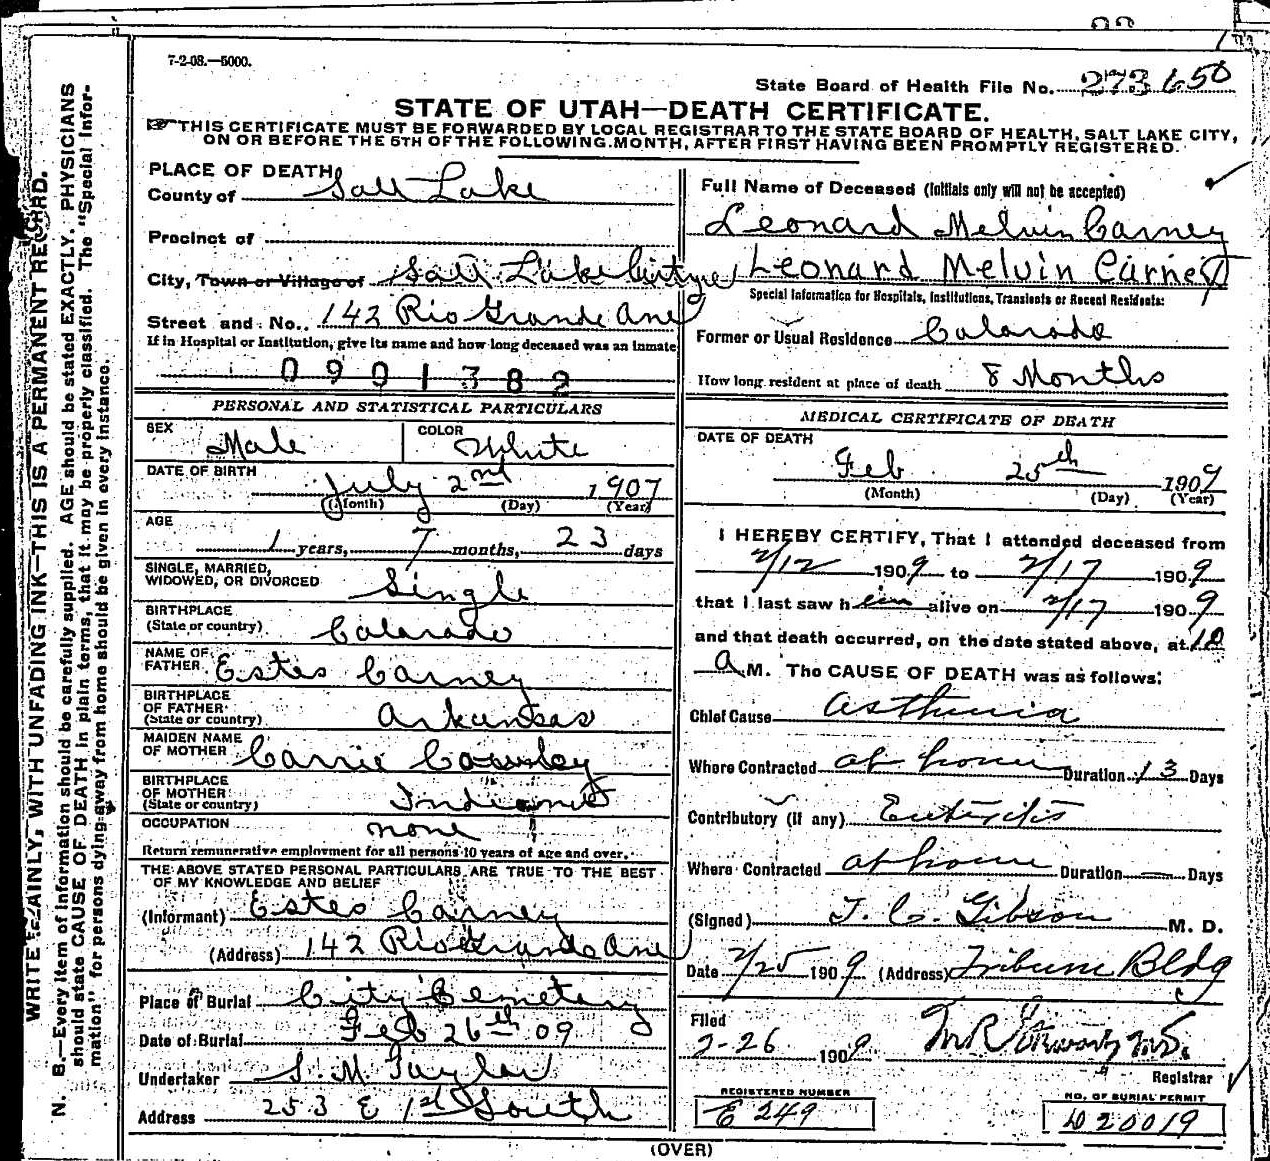 7-2-08.—5000.
State Board of Health File No. 273 650
STATE OF UTAH—DEATH CERTIFICATE.
☞THIS CERTIFICATE MUST BE FORWARDED BY LOCAL REGISTRAR TO THE STATE BOARD OF HEALTH, SALT LAKE CITY,
ON OR BEFORE THE 5TH OF THE FOLLOWING MONTH, AFTER FIRST HAVING BEEN PROMPTLY REGISTERED.
PLACE OF DEATH,
County of Salt Lake
Precinct of
City, Town or Village of Salt Lake City
Street and No. 142 Rio Grande Ave
If in Hospital or Institution, give its name and how long deceased was an inmate
0901382
PERSONAL AND STATISTICAL PARTICULARS
SEX Male COLOR White
DATE OF BIRTH
July 2nd 1907
(Month) (Day) (Year)
AGE
1 years, 7 months, 23 days
SINGLE, MARRIED,
WIDOWED, OR DIVORCED Single
BIRTHPLACE
(State or country) Colorado
NAME OF
FATHER Estes Carney
BIRTHPLACE
OF FATHER
(State or country) Arkansas
MAIDEN NAME
OF MOTHER Carrie
BIRTHPLACE
OF MOTHER
(State or country) Indiana
OCCUPATION none
Return remunerative employment for all persons 10 years of age and over.
THE ABOVE STATED PERSONAL PARTICULARS ARE TRUE TO THE BEST
OF MY KNOWLEDGE AND BELIEF
(Informant) Estes Carney
(Address) 142 Rio Grande Ave
Place of Burial City Cemetery
Date of Burial Feb 26th 09
Undertaker S. M. Taylor
Address 253 E 1st South
Full Name of Deceased (Initials only will not be accepted)
Leonard Melvin Carney
Leonard Melvin Carney
Special Information for Hospitals, Institutions, Transients or Recent Residents:
Former or Usual Residence Colorado
How long resident at place of death 8 Months
MEDICAL CERTIFICATE OF DEATH
DATE OF DEATH
Feb 25th 1909
(Month) (Day) (Year)
I HEREBY CERTIFY, That I attended deceased from
2/12 1909 to 2/17 1909
that I last saw him alive on 2/17 1909
and that death occurred, on the date stated above, at 10
A M. The CAUSE OF DEATH was as follows:
Chief Cause Asthenia
Where Contracted at home Duration 13 Days
Contributory (if any)
Where Contracted at home Duration — Days
(Signed) T. C. Gibson M. D.
Date 2/25 1909 (Address) Tribune Bldg
Filed
2-26 1909
Registrar
REGISTERED NUMBER
E 249
NO. OF BURIAL PERMIT
D 20019
(OVER)
WRITE PLAINLY, WITH UNFADING INK—THIS IS A PERMANENT RECORD.
N. B.—Every item of information should be carefully supplied. AGE should be stated EXACTLY. PHYSICIANS
should state CAUSE OF DEATH in plain terms, that it may be properly classified. The "Special Infor-
mation" for persons dying away from home should be given in every instance.